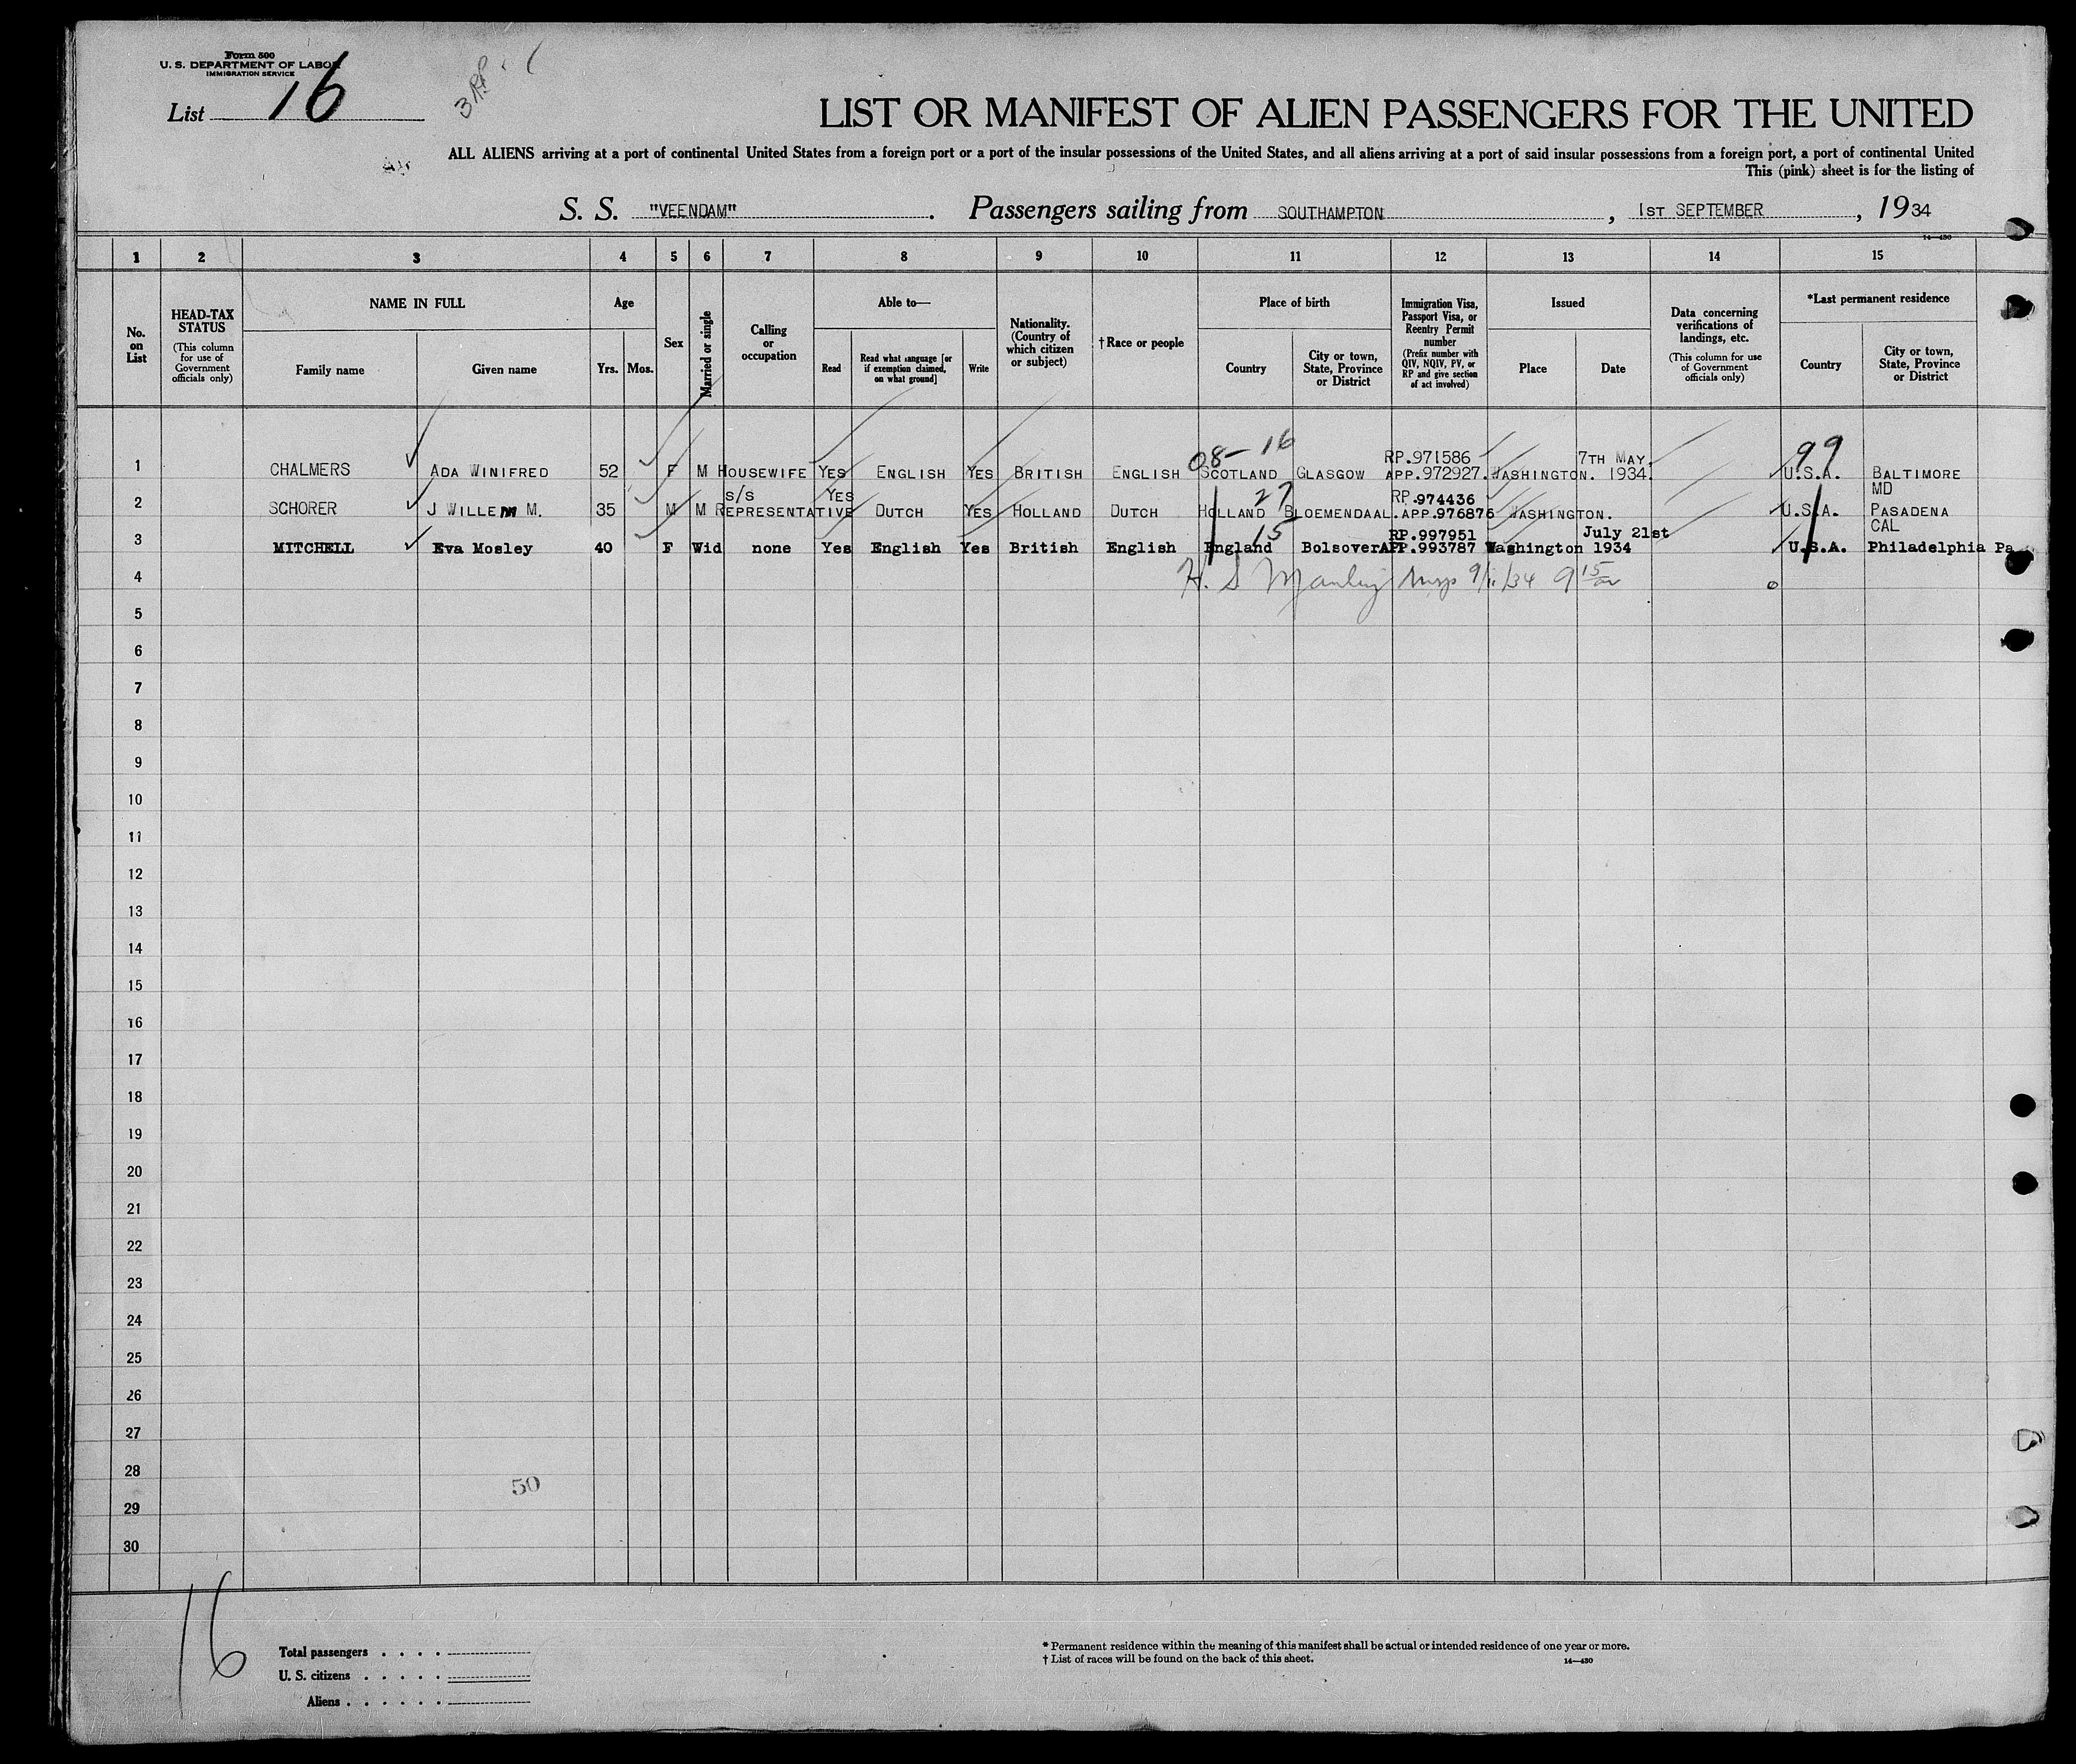 Form 500
U. S. DEPARTMENT OF LABOR
IMMIGRATION SERVICE
List 16
3 RP
LIST OR MANIFEST OF ALIEN PASSENGERS FOR THE UNITED
ALL ALIENS arriving at a port of continental United States from a foreign port or a port of the insular possessions of the United States, and all aliens arriving at a port of said insular possessions from a foreign port, a port of continental United
This (pink) sheet is for the listing of
S. S. "VEENDAM" . Passengers sailing from SOUTHAMPTON , 1ST SEPTEMBER , 1934
14—430
1 2 3 4 5 6 7 8 9 10 11 12 13 14 15
No. on List
HEAD-TAX STATUS (This column for use of Government officials only)
NAME IN FULL
Family name Given name
Age
Yrs. Mos.
Sex
Married or single
Calling or occupation
Able to—
Read Read what language [or if exemption claimed, on what ground] Write
Nationality. (Country of which citizen or subject)
†Race or people
Place of birth
Country City or town, State, Province or District
Immigration Visa, Passport Visa, or Reentry Permit number (Prefix number with QIV, NQIV, PV, or RP and give section of act involved)
Issued
Place Date
Data concerning verifications of landings, etc. (This column for use of Government officials only)
*Last permanent residence
Country City or town, State, Province or District
08- 16 RP.971586 7TH MAY. 99
1 CHALMERS ADA WINIFRED 52 F M HOUSEWIFE YES ENGLISH YES BRITISH ENGLISH SCOTLAND GLASGOW APP.972927. WASHINGTON. 1934. U.S.A. BALTIMORE
S/S YES 27 RP.974436 MD
2 SCHORER J WILLEM M. 35 M M REPRESENTATIVE DUTCH YES HOLLAND DUTCH HOLLAND BLOEMENDAAL. APP.976876 WASHINGTON. U.S.A. PASADENA
15 RP.997951 July 21st CAL
3 MITCHELL Eva Mosley 40 F Wid none Yes English Yes British English England Bolsover APP.993787 Washington 1934 U.S.A. Philadelphia Pa
4 H. S 9/11/34 9 15
5
6
7
8
9
10
11
12
13
14
15
16
17
18
19
20
21
22
23
24
25
26
27
28
50
29
30
16
Total passengers . . . .
U. S. citizens . . . . .
Aliens . . . . . .
* Permanent residence within the meaning of this manifest shall be actual or intended residence of one year or more.
† List of races will be found on the back of this sheet.
14—430